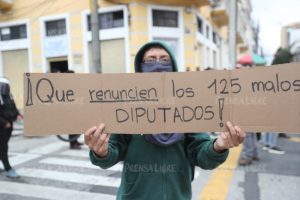 ¡Que renuncien los 125 malos
DIPUTADOS!
PRENSA LIBRE